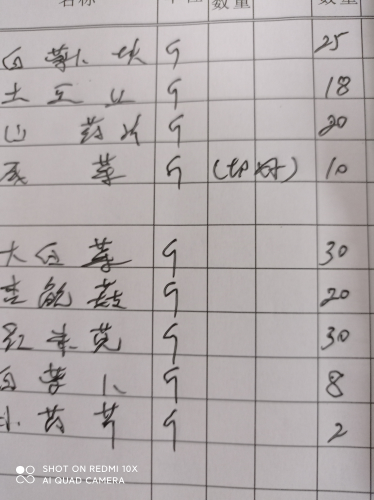 名称 单位 数量 数量
白萝卜块 斤 25
土豆丝 斤 18
山药片 斤 20
菜 斤 (切好) 10
大白菜 斤 30
杏鲍菇 斤 20
红米苋 斤 30
白萝卜 斤 8
小 芹 斤 2
SHOT ON REDMI 10X
AI QUAD CAMERA